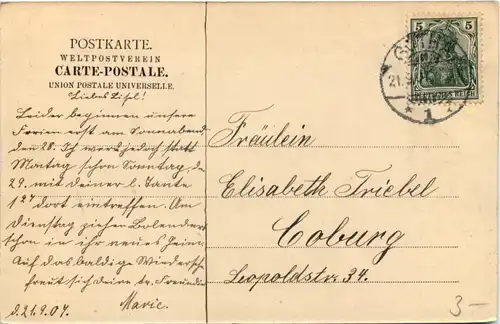 POSTKARTE.
WELTPOSTVEREIN
CARTE-POSTALE.
UNION POSTALE UNIVERSELLE.
Liebes Lisel!
Leider beginnen unsere
Ferien erst am Sonnabend
den 28. Ich werde jedoch statt
Montag schon Sonntag, d.
29. mit deiner l. Tante
1 27 dort eintreffen. Am
Dienstag ziehen
schon in ihr neues Heim.
Auf das baldige Wiedersehn
freut sich deine tr. Freundin
Marie.
d. 21.9.07.
5 5
GOTHA
21.9.
1
Fräulein
Elisabeth Triebel
Coburg
Leopoldstr. 34.
3-